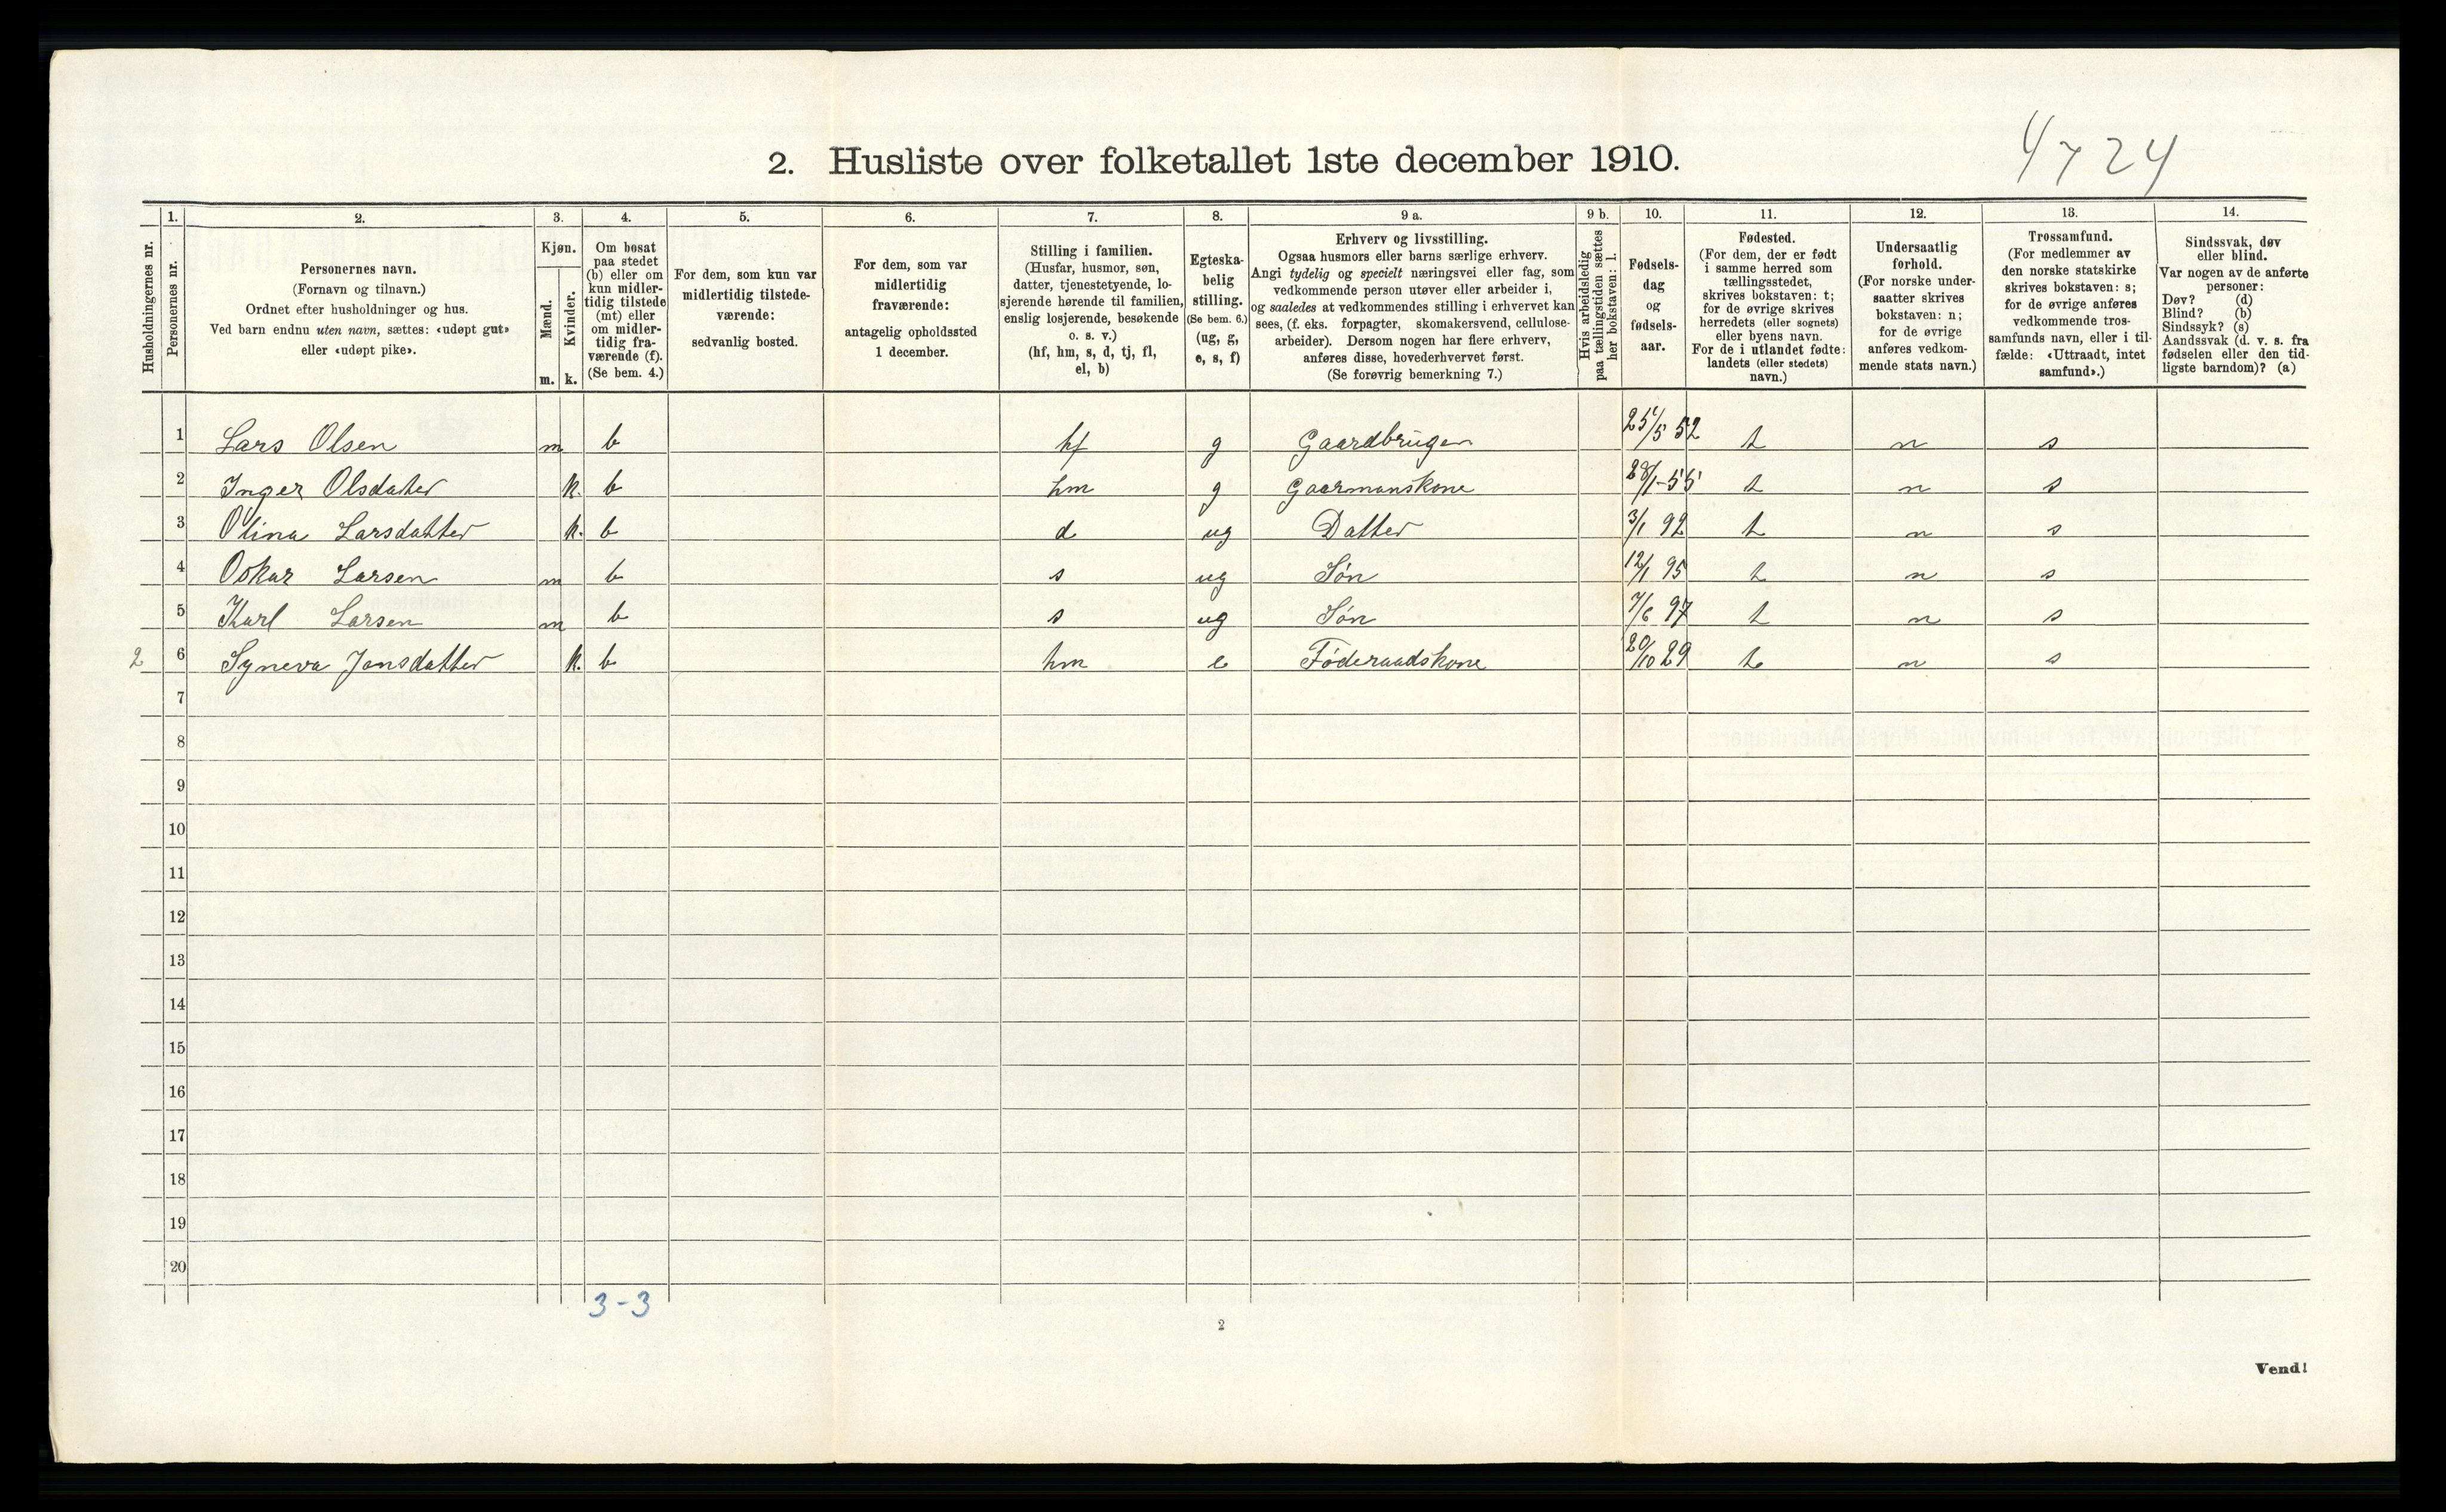 4724
2. Husliste over folketallet 1ste december 1910.
Husholdningernes nr.
1.
Personernes nr.
2.
Personernes navn.
(Fornavn og tilnavn.)
Ordnet efter husholdninger og hus.
Ved barn endnu uten navn, sættes: «udøpt gut»
eller «udøpt pike».
3.
Kjøn.
Mænd.
m.
Kvinder.
k.
4.
Om bosat
paa stedet
(b) eller om
kun midler-
tidig tilstede
(mt) eller
om midler-
tidig fra-
værende (f).
(Se bem. 4.)
5.
For dem, som kun var
midlertidig tilstede-
værende:
sedvanlig bosted.
6.
For dem, som var
midlertidig
fraværende:
antagelig opholdssted
1 december.
7.
Stilling i familien.
(Husfar, husmor, søn,
datter, tjenestetyende, lo-
sjerende hørende til familien,
enslig losjerende, besøkende
o. s. v.)
(hf, hm, s, d, tj, fl,
el, b)
8.
Egteska-
belig
stilling.
(Se bem. 6.)
(ug, g,
e, s, f)
9 a.
Erhverv og livsstilling.
Ogsaa husmors eller barns særlige erhverv.
Angi tydelig og specielt næringsvei eller fag, som
vedkommende person utøver eller arbeider i,
og saaledes at vedkommendes stilling i erhvervet kan
sees, (f. eks. forpagter, skomakersvend, cellulose-
arbeider). Dersom nogen har flere erhverv,
anføres disse, hovederhvervet først.
(Se forøvrig bemerkning 7.)
9 b.
Hvis arbeidsledig
paa tællingstiden sættes
her bokstaven: l.
10.
Fødsels-
dag
og
fødsels-
aar.
11.
Fødested.
(For dem, der er født
i samme herred som
tællingsstedet,
skrives bokstaven: t;
for de øvrige skrives
herredets (eller sognets)
eller byens navn.
For de i utlandet fødte:
landets (eller stedets)
navn.)
12.
Undersaatlig
forhold.
(For norske under-
saatter skrives
bokstaven: n;
for de øvrige
anføres vedkom-
mende stats navn.)
13.
Trossamfund.
(For medlemmer av
den norske statskirke
skrives bokstaven: s;
for de øvrige anføres
vedkommende tros-
samfunds navn, eller i til-
fælde: «Uttraadt, intet
samfund».)
14.
Sindssvak, døv
eller blind.
Var nogen av de anførte
personer:
Døv? (d)
Blind? (b)
Sindssyk? (s)
Aandssvak (d. v. s. fra
fødselen eller den tid-
ligste barndom)? (a)
1 Lars Olsen m b hf g Gaardbruger 25/5 52 t n s
2 Inger Olsdatter k. b hm g Gaarmanskone 28/1-55 t n s
3 Olina Larsdatter k. b d ug Datter 3/1 92 t n s
4 Oskar Larsen m b s ug Søn 12/1 95 t n s
5 Karl Larsen m b s ug Søn 7/6 97 t n s
2 6 Syneva Jonsdatter k. b hm e Føderaadskone 20/10 29 t n s
7
8
9
10
11
12
13
14
15
16
17
18
19
20
3-3
2
Vend!